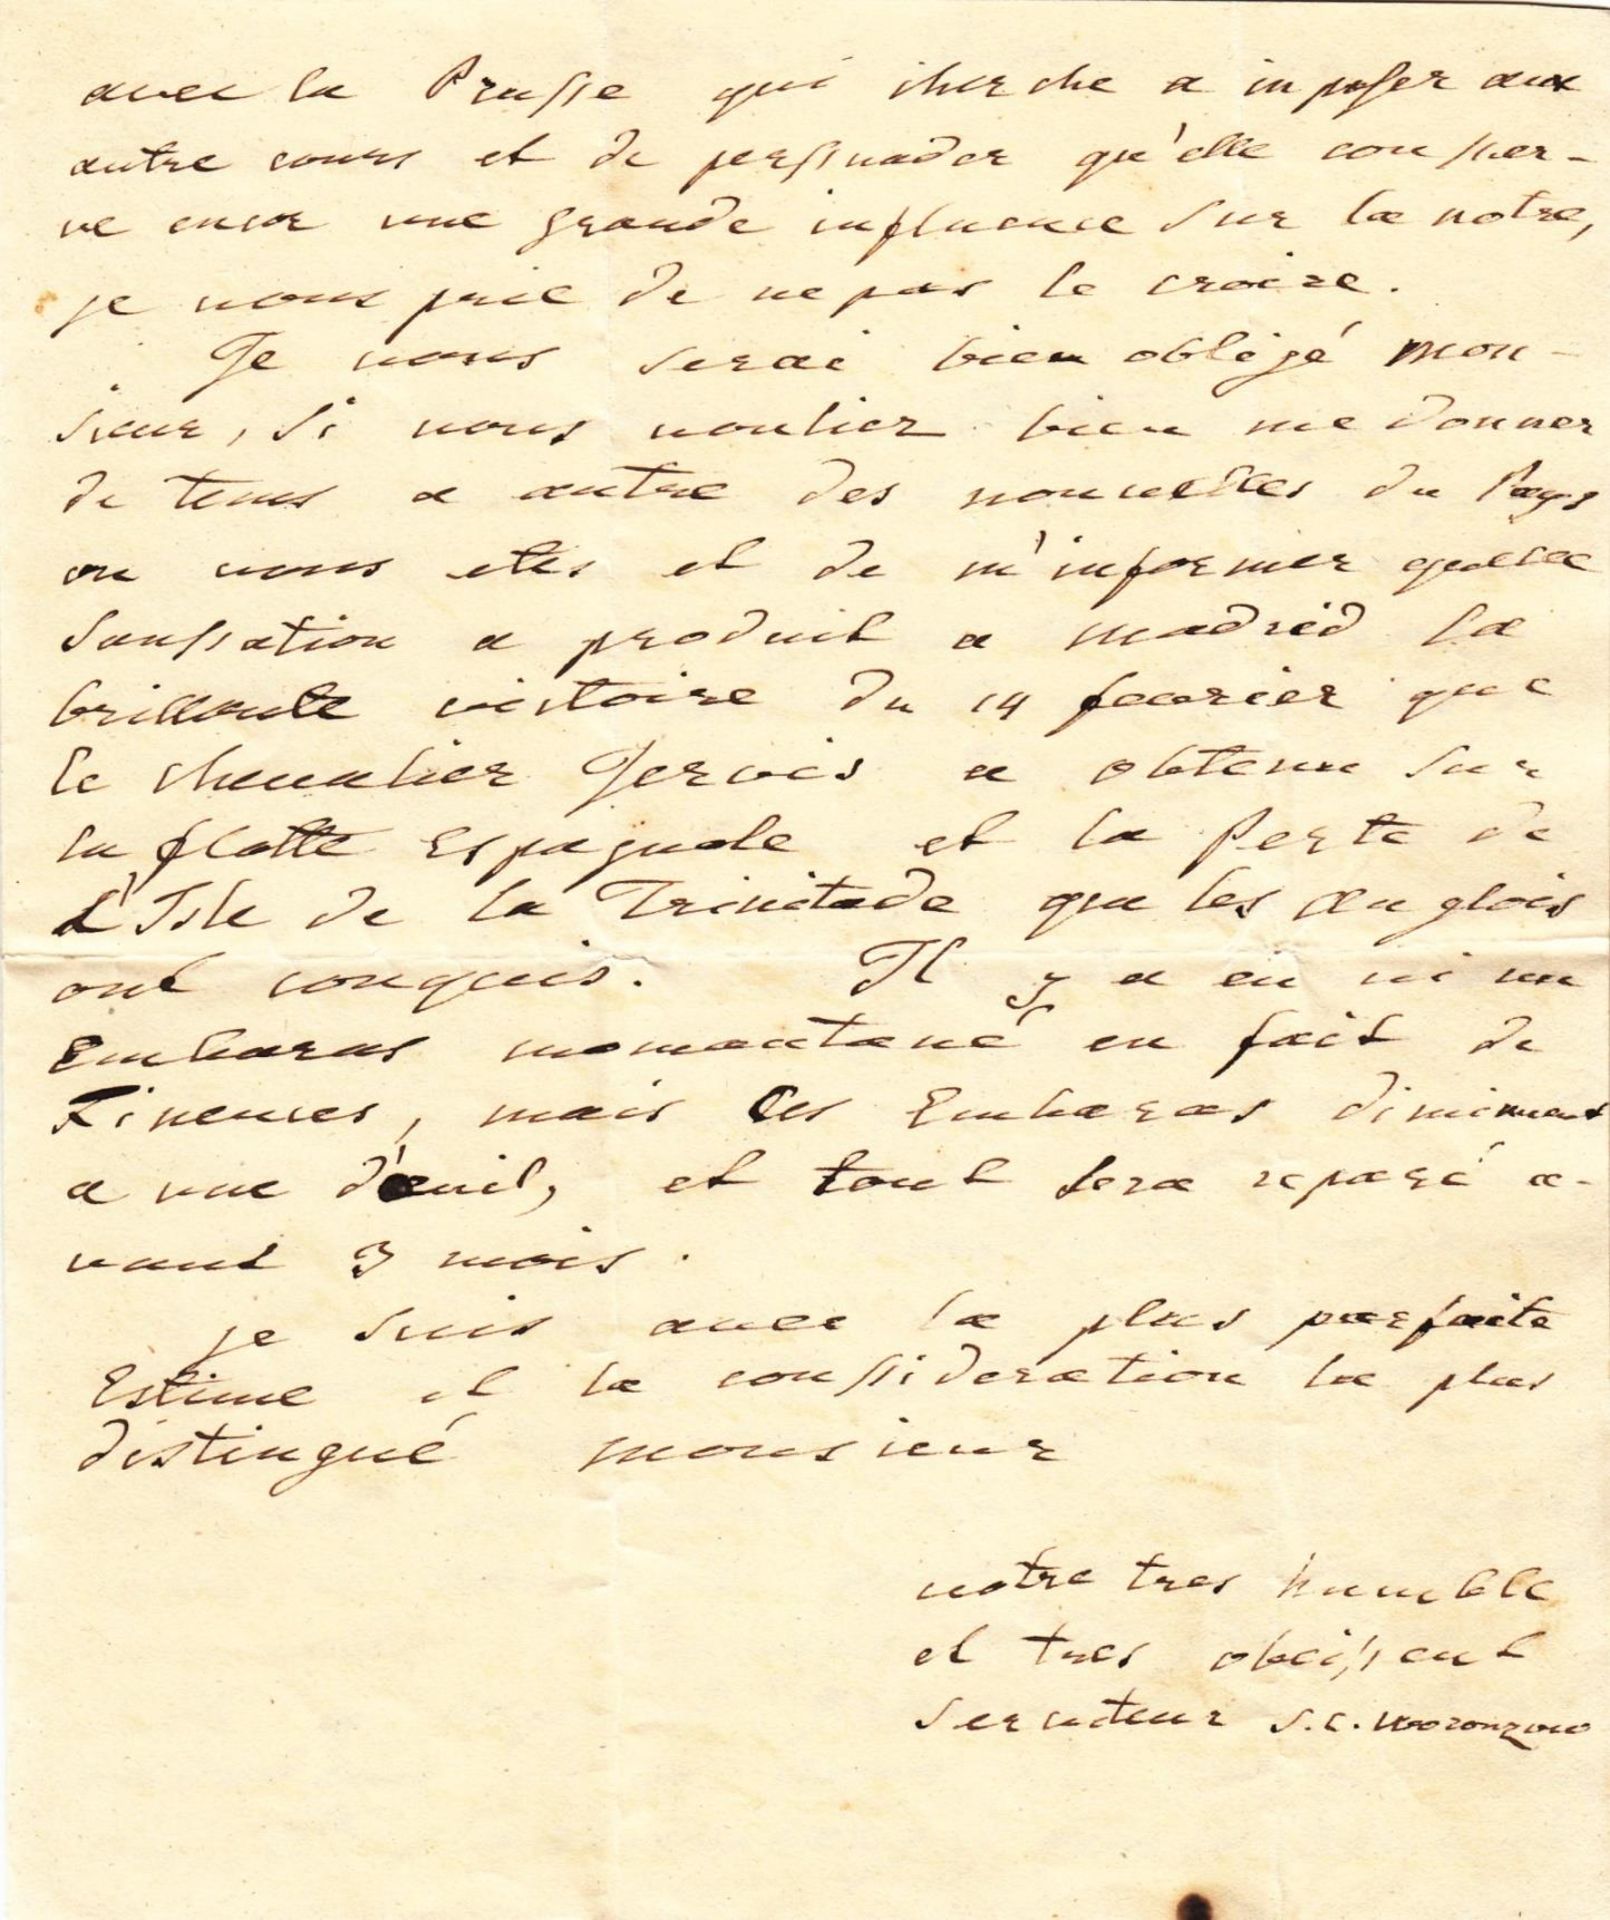 avec la Prusse qui cherche a imposer aux
autre cours et de persuader qu'elle conser-
ve encor une grande influence sur la notre,
je vous prie de ne pas le croire.
Je vous serai bien obligé mon-
sieur, si vous voulier bien me donner
de tems a autre des nouvelles du Pays
ou vous etes et de m'informer quelle
sanssation a produit a madrid la
brillante victoire du 14 fevrier que
le chevalier Jervis a obtenu sur
la flotte Espagnole et la Perte de
L'Isle de la Trinitade que les anglois
ont conquis. Il y a eu ici un
Embaras momantané en fait de
Finences, mais ces Embaras diminuent
a vue d'œuil, et tout sera reparé a-
vant 3 mois.
je suis avec la plus parfaite
Estime et la consideration la plus
distingué monsieur
votre tres humble
et tres obeissent
serviteur S. C. Woronzow